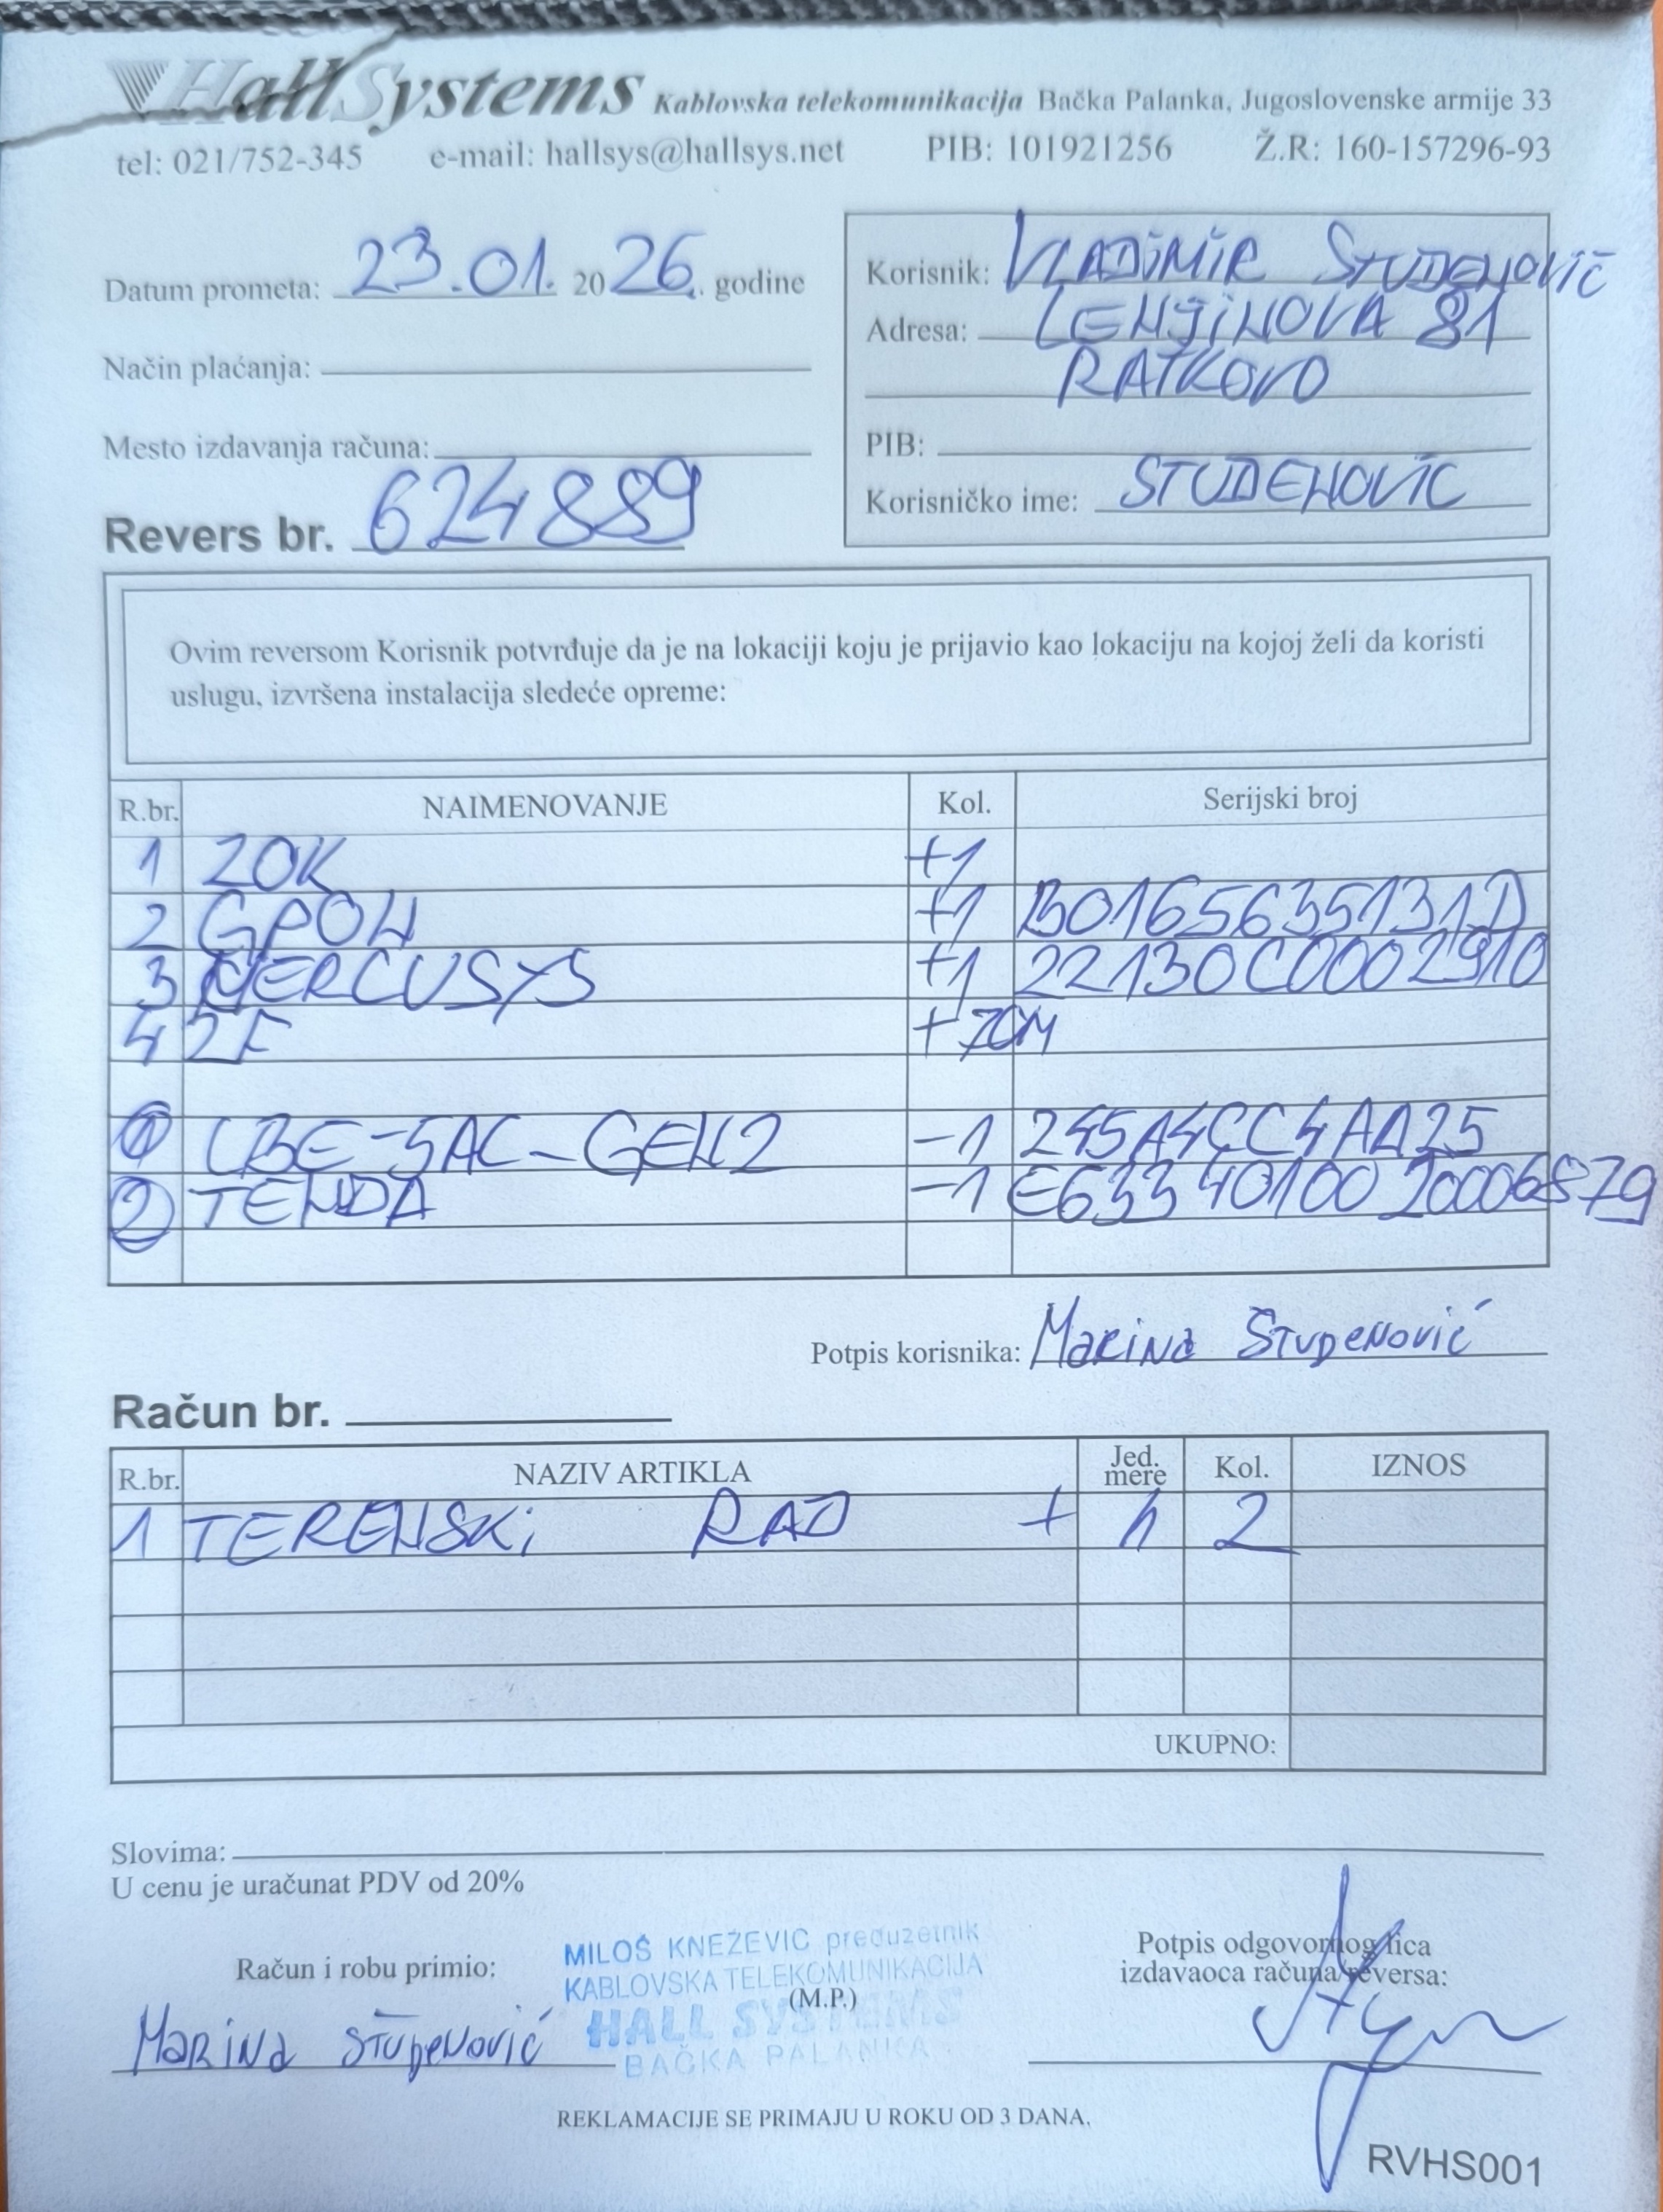 HallSystems Kablovska telekomunikacija Bačka Palanka, Jugoslovenske armije 33
tel: 021/752-345 e-mail: hallsys@hallsys.net PIB: 101921256 Ž.R: 160-157296-93
Datum prometa: 23.01. 2026. godine
Način plaćanja:
Mesto izdavanja računa:
Revers br. 624889
Korisnik: VLADIMIR STUDENOVIĆ
Adresa: LENJINOVA 81
RATKOVO
PIB:
Korisničko ime: STUDENOVIC
Ovim reversom Korisnik potvrđuje da je na lokaciji koju je prijavio kao lokaciju na kojoj želi da koristi
uslugu, izvršena instalacija sledeće opreme:
R.br. NAIMENOVANJE Kol. Serijski broj
1 ZOK +1
2 GPON +1 B0165635131D
3 MERCUSYS +1 22130C0002910
4 2F
1 LBE-5AC-GEN2 -1 245A4CC4AA25
2 TENDA -1 E6334010020006879
Potpis korisnika: Marina Studenović
Račun br.
R.br. NAZIV ARTIKLA Jed. mere Kol. IZNOS
1 TERENSKI RAD + h 2
UKUPNO:
Slovima:
U cenu je uračunat PDV od 20%
Račun i robu primio:
Marina Studenović
MILOŠ KNEŽEVIĆ preduzetnik
KABLOVSKA TELEKOMUNIKACIJA
(M.P.)
HALL SYSTEMS
BAČKA PALANKA
Potpis odgovornog lica
izdavaoca računa/reversa:
REKLAMACIJE SE PRIMAJU U ROKU OD 3 DANA.
RVHS001